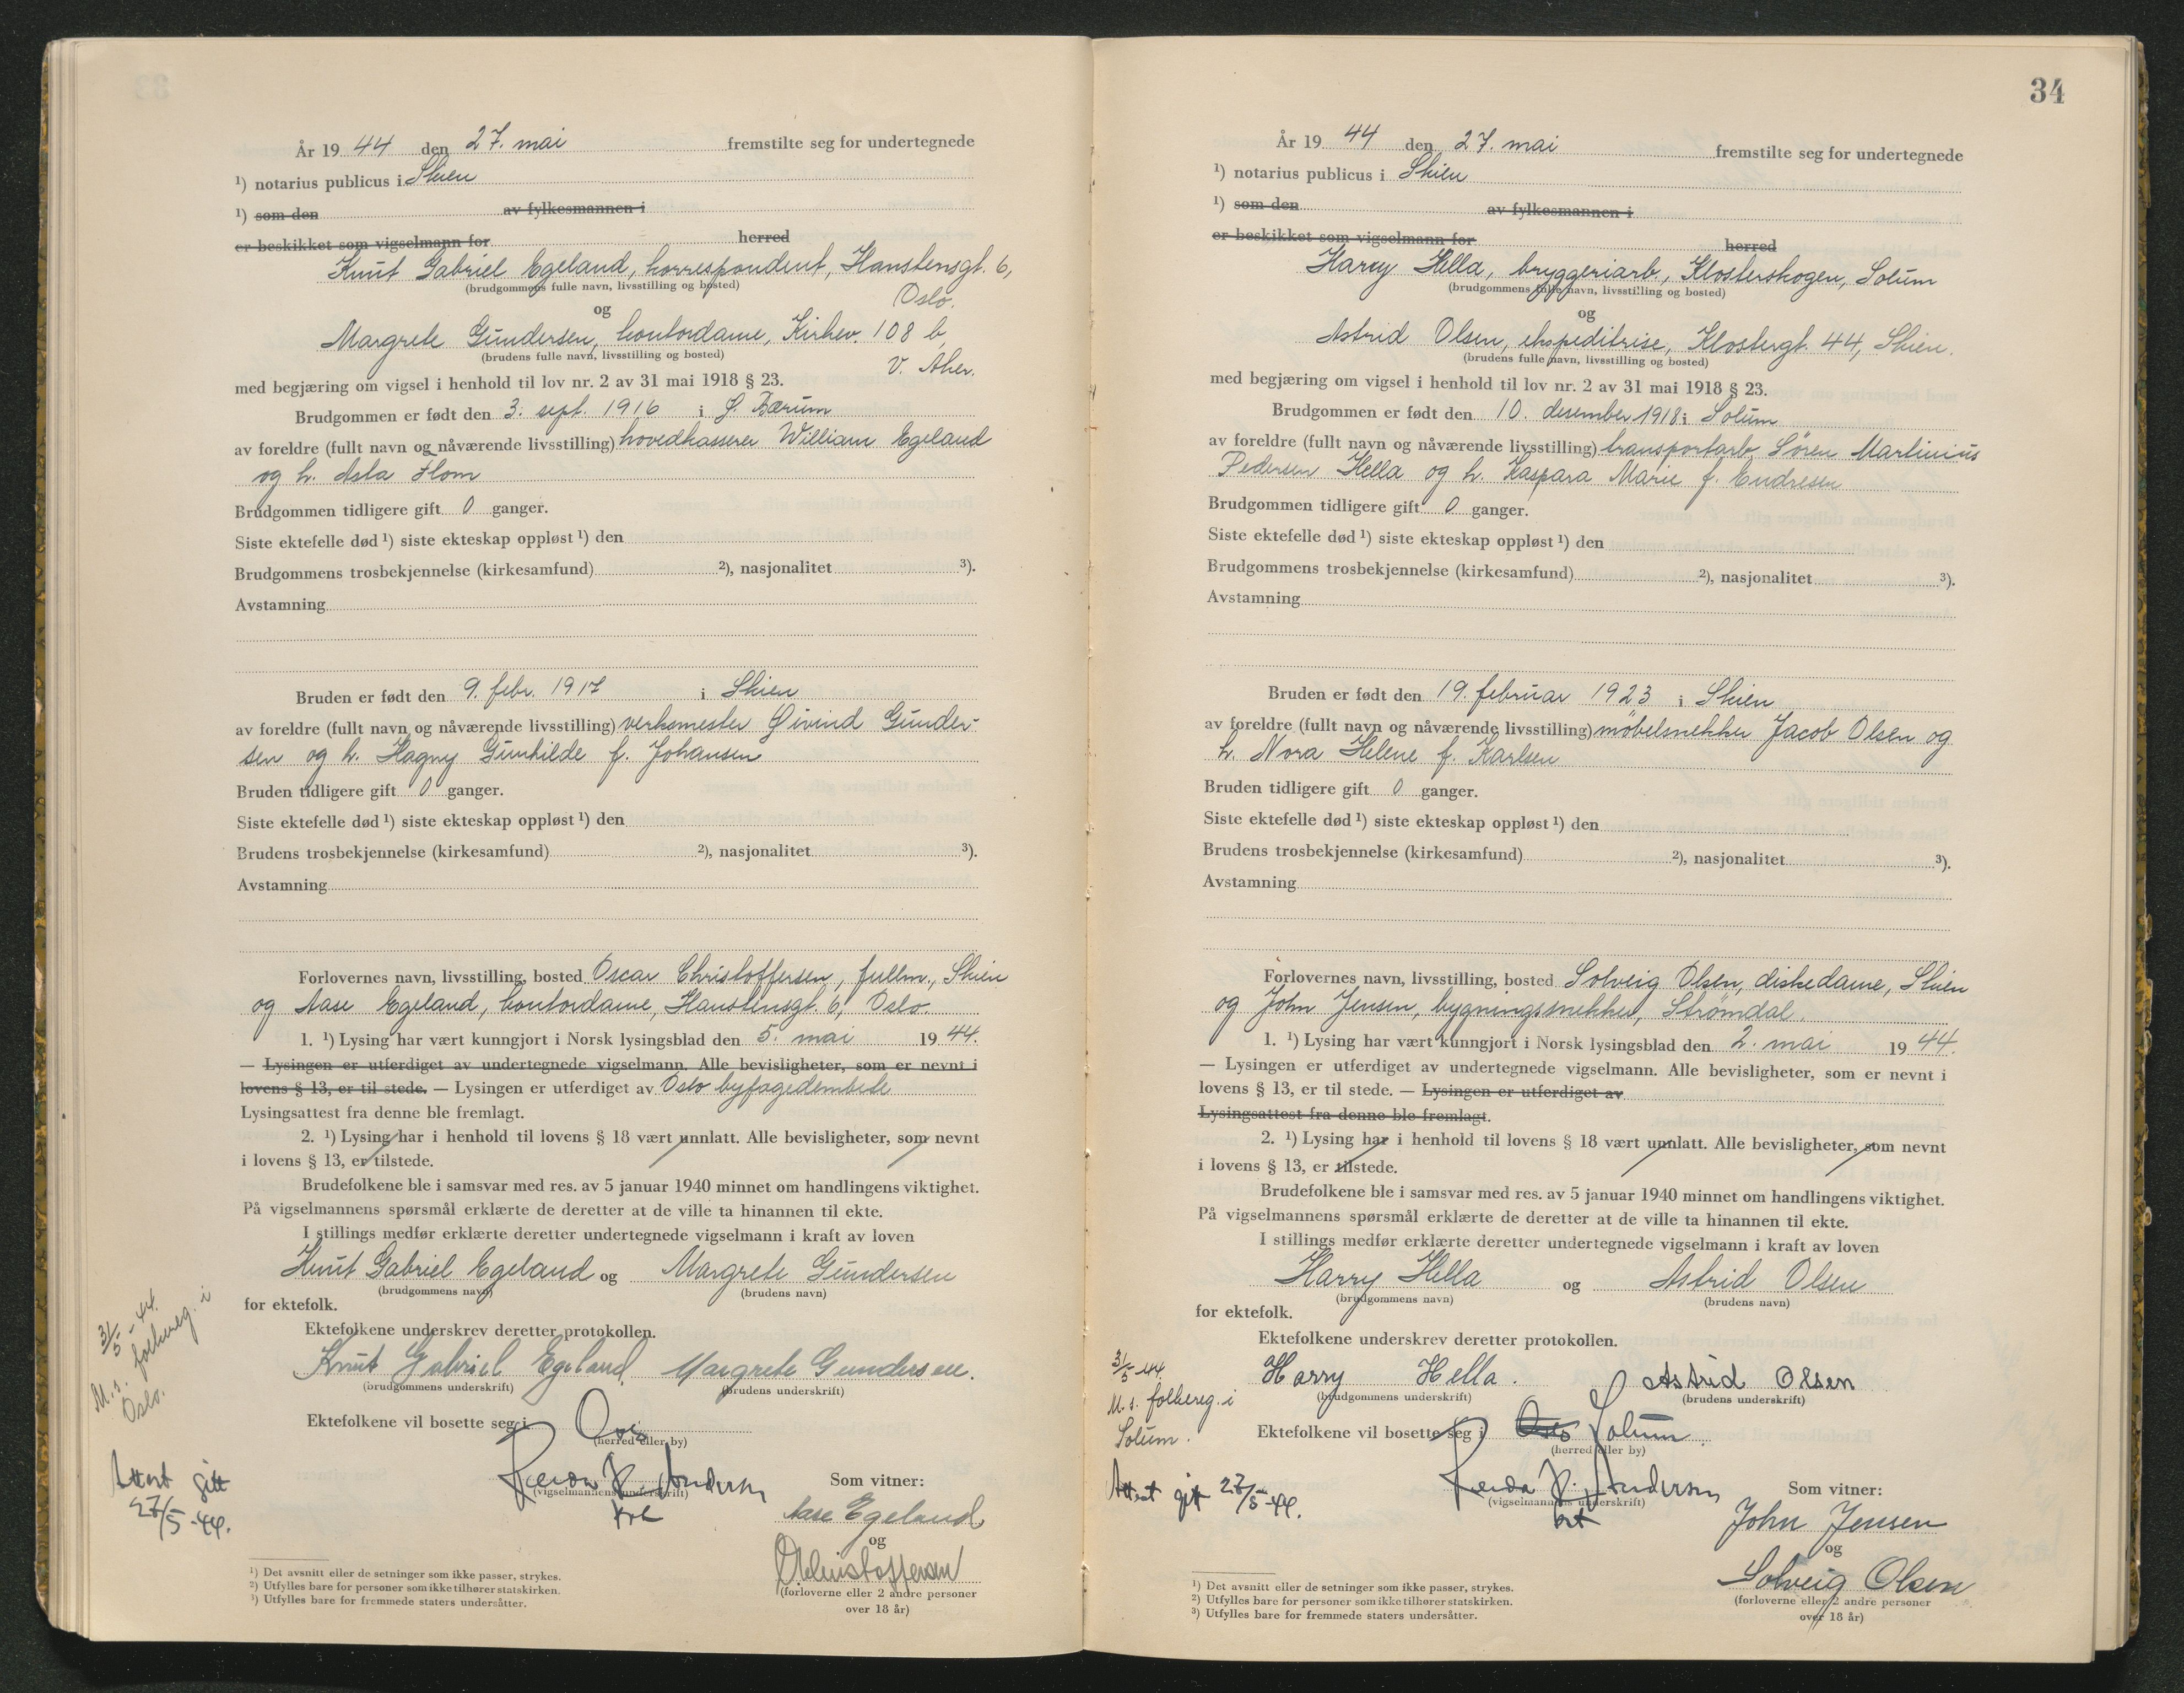 År 19 44 den 27. mai fremstilte seg for undertegnede
¹) notarius publicus i Skien
¹) som den av fylkesmannen i
er beskikket som vigselmann for herred
Knut Gabriel Egeland, korrespondent, Hanstensgt. 6,
(brudgommens fulle navn, livsstilling og bosted)
Oslo.
og
Margrete Gundersen, kontordame, Kirkev. 108 b,
(brudens fulle navn, livsstilling og bosted)
V. Aker.
med begjæring om vigsel i henhold til lov nr. 2 av 31 mai 1918 § 23.
Brudgommen er født den 3. sept. 1916 i Ø. Bærum
av foreldre (fullt navn og nåværende livsstilling) hovedkasserer William Egeland
og h. Asta Flom
Brudgommen tidligere gift 0 ganger.
Siste ektefelle død ¹) siste ekteskap oppløst ¹) den
Brudgommens trosbekjennelse (kirkesamfund) ²), nasjonalitet ³).
Avstamning
Bruden er født den 9. febr. 1917 i Skien
av foreldre (fullt navn og nåværende livsstilling) verksmester Øivind Gunder-
sen og h. Hagny Gunhilde f. Johansen
Bruden tidligere gift 0 ganger.
Siste ektefelle død ¹) siste ekteskap oppløst ¹) den
Brudens trosbekjennelse (kirkesamfund) ²), nasjonalitet ³).
Avstamning
Forlovernes navn, livsstilling, bosted Oscar Christoffersen, fullm., Skien
og Aase Egeland, kontordame, Hanstensgt. 6, Oslo.
1. ¹) Lysing har vært kunngjort i Norsk lysingsblad den 5. mai 19 44.
— Lysingen er utferdiget av undertegnede vigselmann. Alle bevisligheter, som er nevnt i
lovens § 13, er til stede. — Lysingen er utferdiget av Oslo byfogedembete
Lysingsattest fra denne ble fremlagt.
2. ¹) Lysing har i henhold til lovens § 18 vært unnlatt. Alle bevisligheter, som nevnt
i lovens § 13, er tilstede.
Brudefolkene ble i samsvar med res. av 5 januar 1940 minnet om handlingens viktighet.
På vigselmannens spørsmål erklærte de deretter at de ville ta hinannen til ekte.
I stillings medfør erklærte deretter undertegnede vigselmann i kraft av loven
Knut Gabriel Egeland og Margrete Gundersen
(brudgommens navn) (brudens navn)
for ektefolk.
Ektefolkene underskrev deretter protokollen.
Knut Gabriel Egeland. Margrete Gundersen.
(brudgommens underskrift) (brudens underskrift)
31/5-44.
M. s. folkereg. i
Oslo.
Ektefolkene vil bosette seg i Oslo
(herred eller by)
Attest gitt
27/5-44.
Andersen
(vigselmannens underskrift)
Som vitner:
Aase Egeland
og
OChristoffersen
(forloverne eller 2 andre personer
over 18 år)
¹) Det avsnitt eller de setninger som ikke passer, strykes.
²) Utfylles bare for personer som ikke tilhører statskirken.
³) Utfylles bare for fremmede staters undersåtter.
34
År 19 44 den 27. mai fremstilte seg for undertegnede
¹) notarius publicus i Skien
¹) som den av fylkesmannen i
er beskikket som vigselmann for herred
Harry Hella, bryggeriarb., Klosterskogen, Solum
(brudgommens fulle navn, livsstilling og bosted)
og
Astrid Olsen, ekspeditrise, Klostergt. 44, Skien.
(brudens fulle navn, livsstilling og bosted)
med begjæring om vigsel i henhold til lov nr. 2 av 31 mai 1918 § 23.
Brudgommen er født den 10. desember 1918 i Solum
av foreldre (fullt navn og nåværende livsstilling) transportarb. Sören Martinius
Pedersen Hella og h. Kaspara Marie f. Endresen
Brudgommen tidligere gift 0 ganger.
Siste ektefelle død ¹) siste ekteskap oppløst ¹) den
Brudgommens trosbekjennelse (kirkesamfund) ²), nasjonalitet ³).
Avstamning
Bruden er født den 19. februar 1923 i Skien
av foreldre (fullt navn og nåværende livsstilling) möbelsnekker Jacob Olsen og
h. Nora Helene f. Karlsen
Bruden tidligere gift 0 ganger.
Siste ektefelle død ¹) siste ekteskap oppløst ¹) den
Brudens trosbekjennelse (kirkesamfund) ²), nasjonalitet ³).
Avstamning
Forlovernes navn, livsstilling, bosted Solveig Olsen, diskedame, Skien
og John Jensen, bygningssnekker, Strömdal.
1. ¹) Lysing har vært kunngjort i Norsk lysingsblad den 2. mai 19 44.
— Lysingen er utferdiget av undertegnede vigselmann. Alle bevisligheter, som er nevnt i
lovens § 13, er til stede. — Lysingen er utferdiget av
Lysingsattest fra denne ble fremlagt.
2. ¹) Lysing har i henhold til lovens § 18 vært unnlatt. Alle bevisligheter, som nevnt
i lovens § 13, er tilstede.
Brudefolkene ble i samsvar med res. av 5 januar 1940 minnet om handlingens viktighet.
På vigselmannens spørsmål erklærte de deretter at de ville ta hinannen til ekte.
I stillings medfør erklærte deretter undertegnede vigselmann i kraft av loven
Harry Hella og Astrid Olsen
(brudgommens navn) (brudens navn)
for ektefolk.
Ektefolkene underskrev deretter protokollen.
Harry Hella. Astrid Olsen
(brudgommens underskrift) (brudens underskrift)
31/5 44.
M. s. folkereg. i
Solum.
Ektefolkene vil bosette seg i Oslo Solum.
(herred eller by)
Attest gitt 27/5-44.
Andersen
(vigselmannens underskrift)
Som vitner:
John Jensen
og
Solveig Olsen
(forloverne eller 2 andre personer
over 18 år)
¹) Det avsnitt eller de setninger som ikke passer, strykes.
²) Utfylles bare for personer som ikke tilhører statskirken.
³) Utfylles bare for fremmede staters undersåtter.